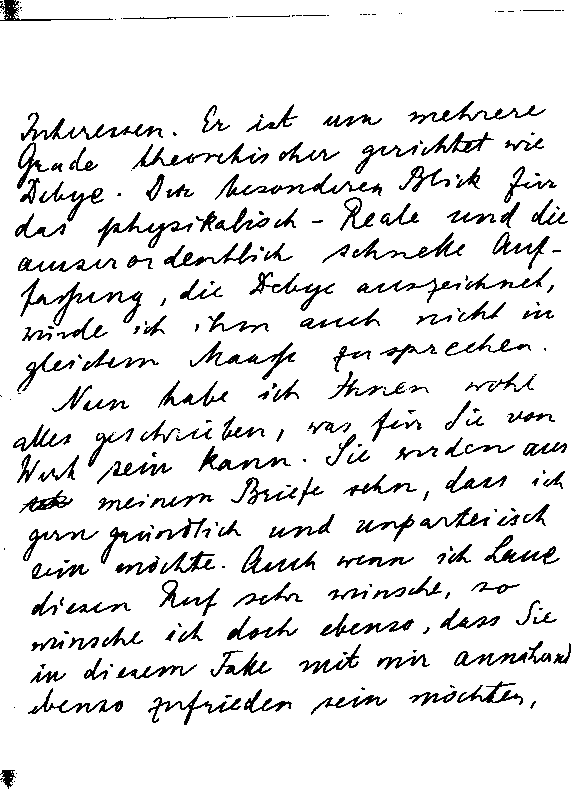 Interessen. Er ist um mehrere
Grade theoretischer gerichtet wie
Debye. Den besonderen Blick für
das physikalisch-Reale und die
ausserordentlich schnelle Auf-
fassung, die Debye auszeichnet,
würde ich ihm auch nicht in
gleichem Maasse zusprechen.
Nun habe ich Ihnen wohl
alles geschrieben, was für Sie von
Wert sein kann. Sie werden aus
meinem Briefe sehn, dass ich
gern gründlich und unparteiisch
sein möchte. Auch wenn ich Laue
diesen Ruf sehr wünsche, so
wünsche ich doch ebenso, dass Sie
in diesem Falle mit mir annähernd
ebenso zufrieden sein möchten,